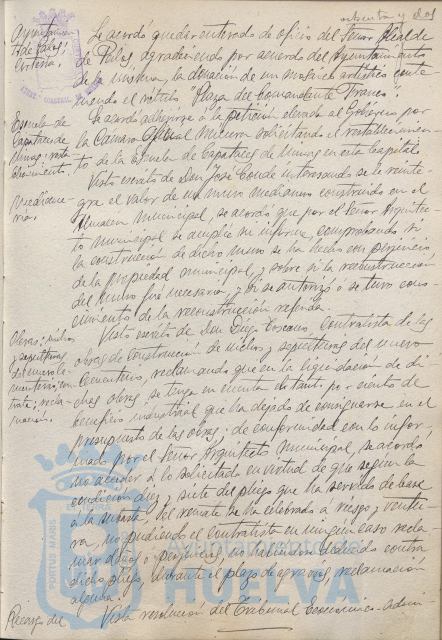 ochenta y dos
Ayuntamien-
to de Palos;
Se acordó quedar enterado de oficio del Señor Alcalde
de Palos, agradeciendo por acuerdo del Ayuntamiento
de la misma, la donación de un mosaico artístico conte
niendo el rótulo "Plaza del Comandante Franco".
Escuela de
Capataces de
Minas: resta
blecimiento.
Se acordó adherirse a la petición elevada al Gobierno por
la Cámara Oficial Minera solicitando el restablecimien
to de la Escuela de Capataces de Minas en esta Capital.
Medianería.
Visto escrito de Don José Conde interesando se le reinte-
gra el valor de un muro medianero construido en el
Almacén Municipal, se acordó que por el Señor Arquitec-
to Municipal se amplíe su informe, comprobando si
la construcción de dicho muro se ha hecho con perjuicio
de la propiedad municipal, y sobre si la reconstrucción
del muro fué necesaria, y si se autorizó o se tuvo cono-
cimiento de la reconstrucción referida.
Obras; nichos
y sepulturas
del nuevo Ce
menterio; con
trata; recla-
mación.
Visto escrito de Don Diego Toscano, Contratista de las
obras de construcción de nichos y sepulturas del nuevo
Cementerio, reclamando que en la liquidación de di-
chas obras se tenga en cuenta el tanto por ciento de
beneficio industrial que ha dejado de consignarse en el
presupuesto de las obras; de conformidad con lo infor-
mado por el Señor Arquitecto Municipal, se acordó
no acceder a lo solicitado en virtud de que según la
condición diez y siete del pliego que ha servido de base
a la subasta, del remate se ha celebrado a riesgo y ventu-
ra, no pudiendo el contratista en ningún caso recla
mar daños o perjuicios, no habiendo deducido contra
dicho pliego, durante el plazo de agravios, reclamación
alguna.
Recargo del
Vista resolución del Tribunal Económico-Admi-
PORTUS MARIS
HUELVA